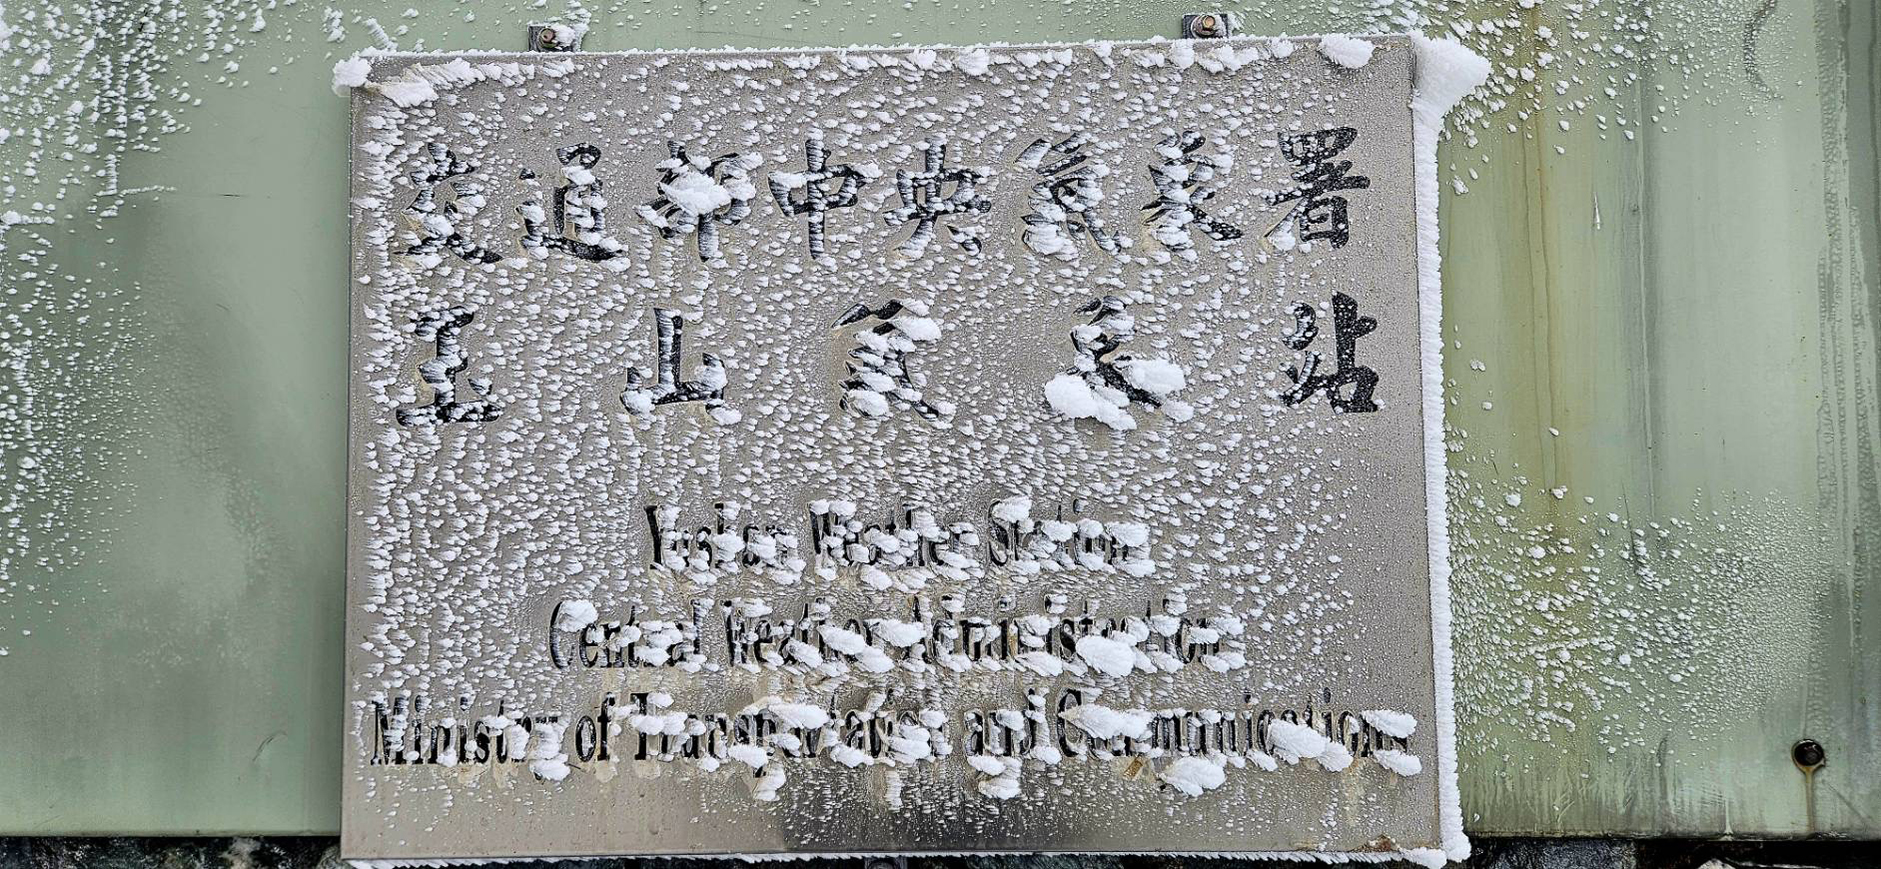 交通部中央氣象署
玉山氣象站
Yushan Weather Station
Central Weather Administration
Ministry of Transportation and Communications